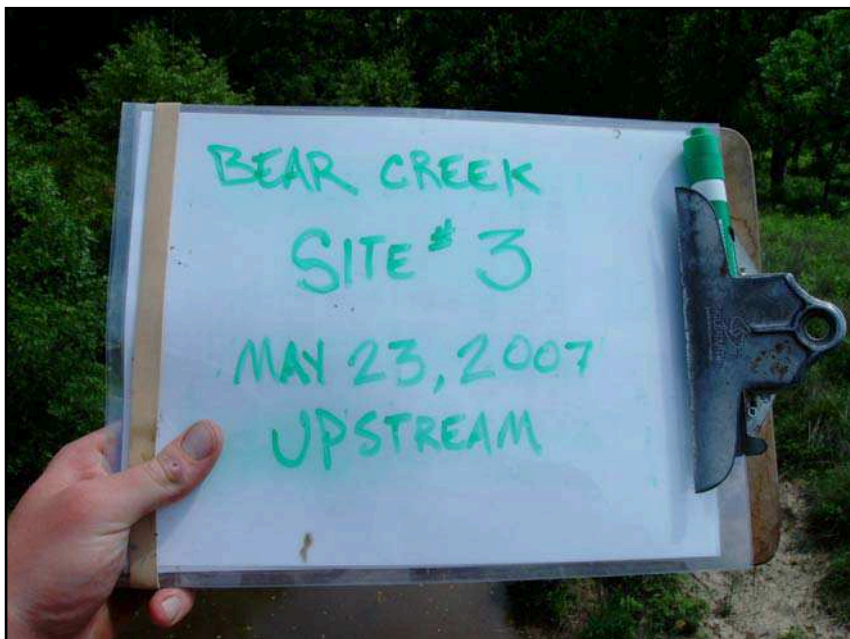 BEAR CREEK
SITE # 3
MAY 23, 2007
UPSTREAM